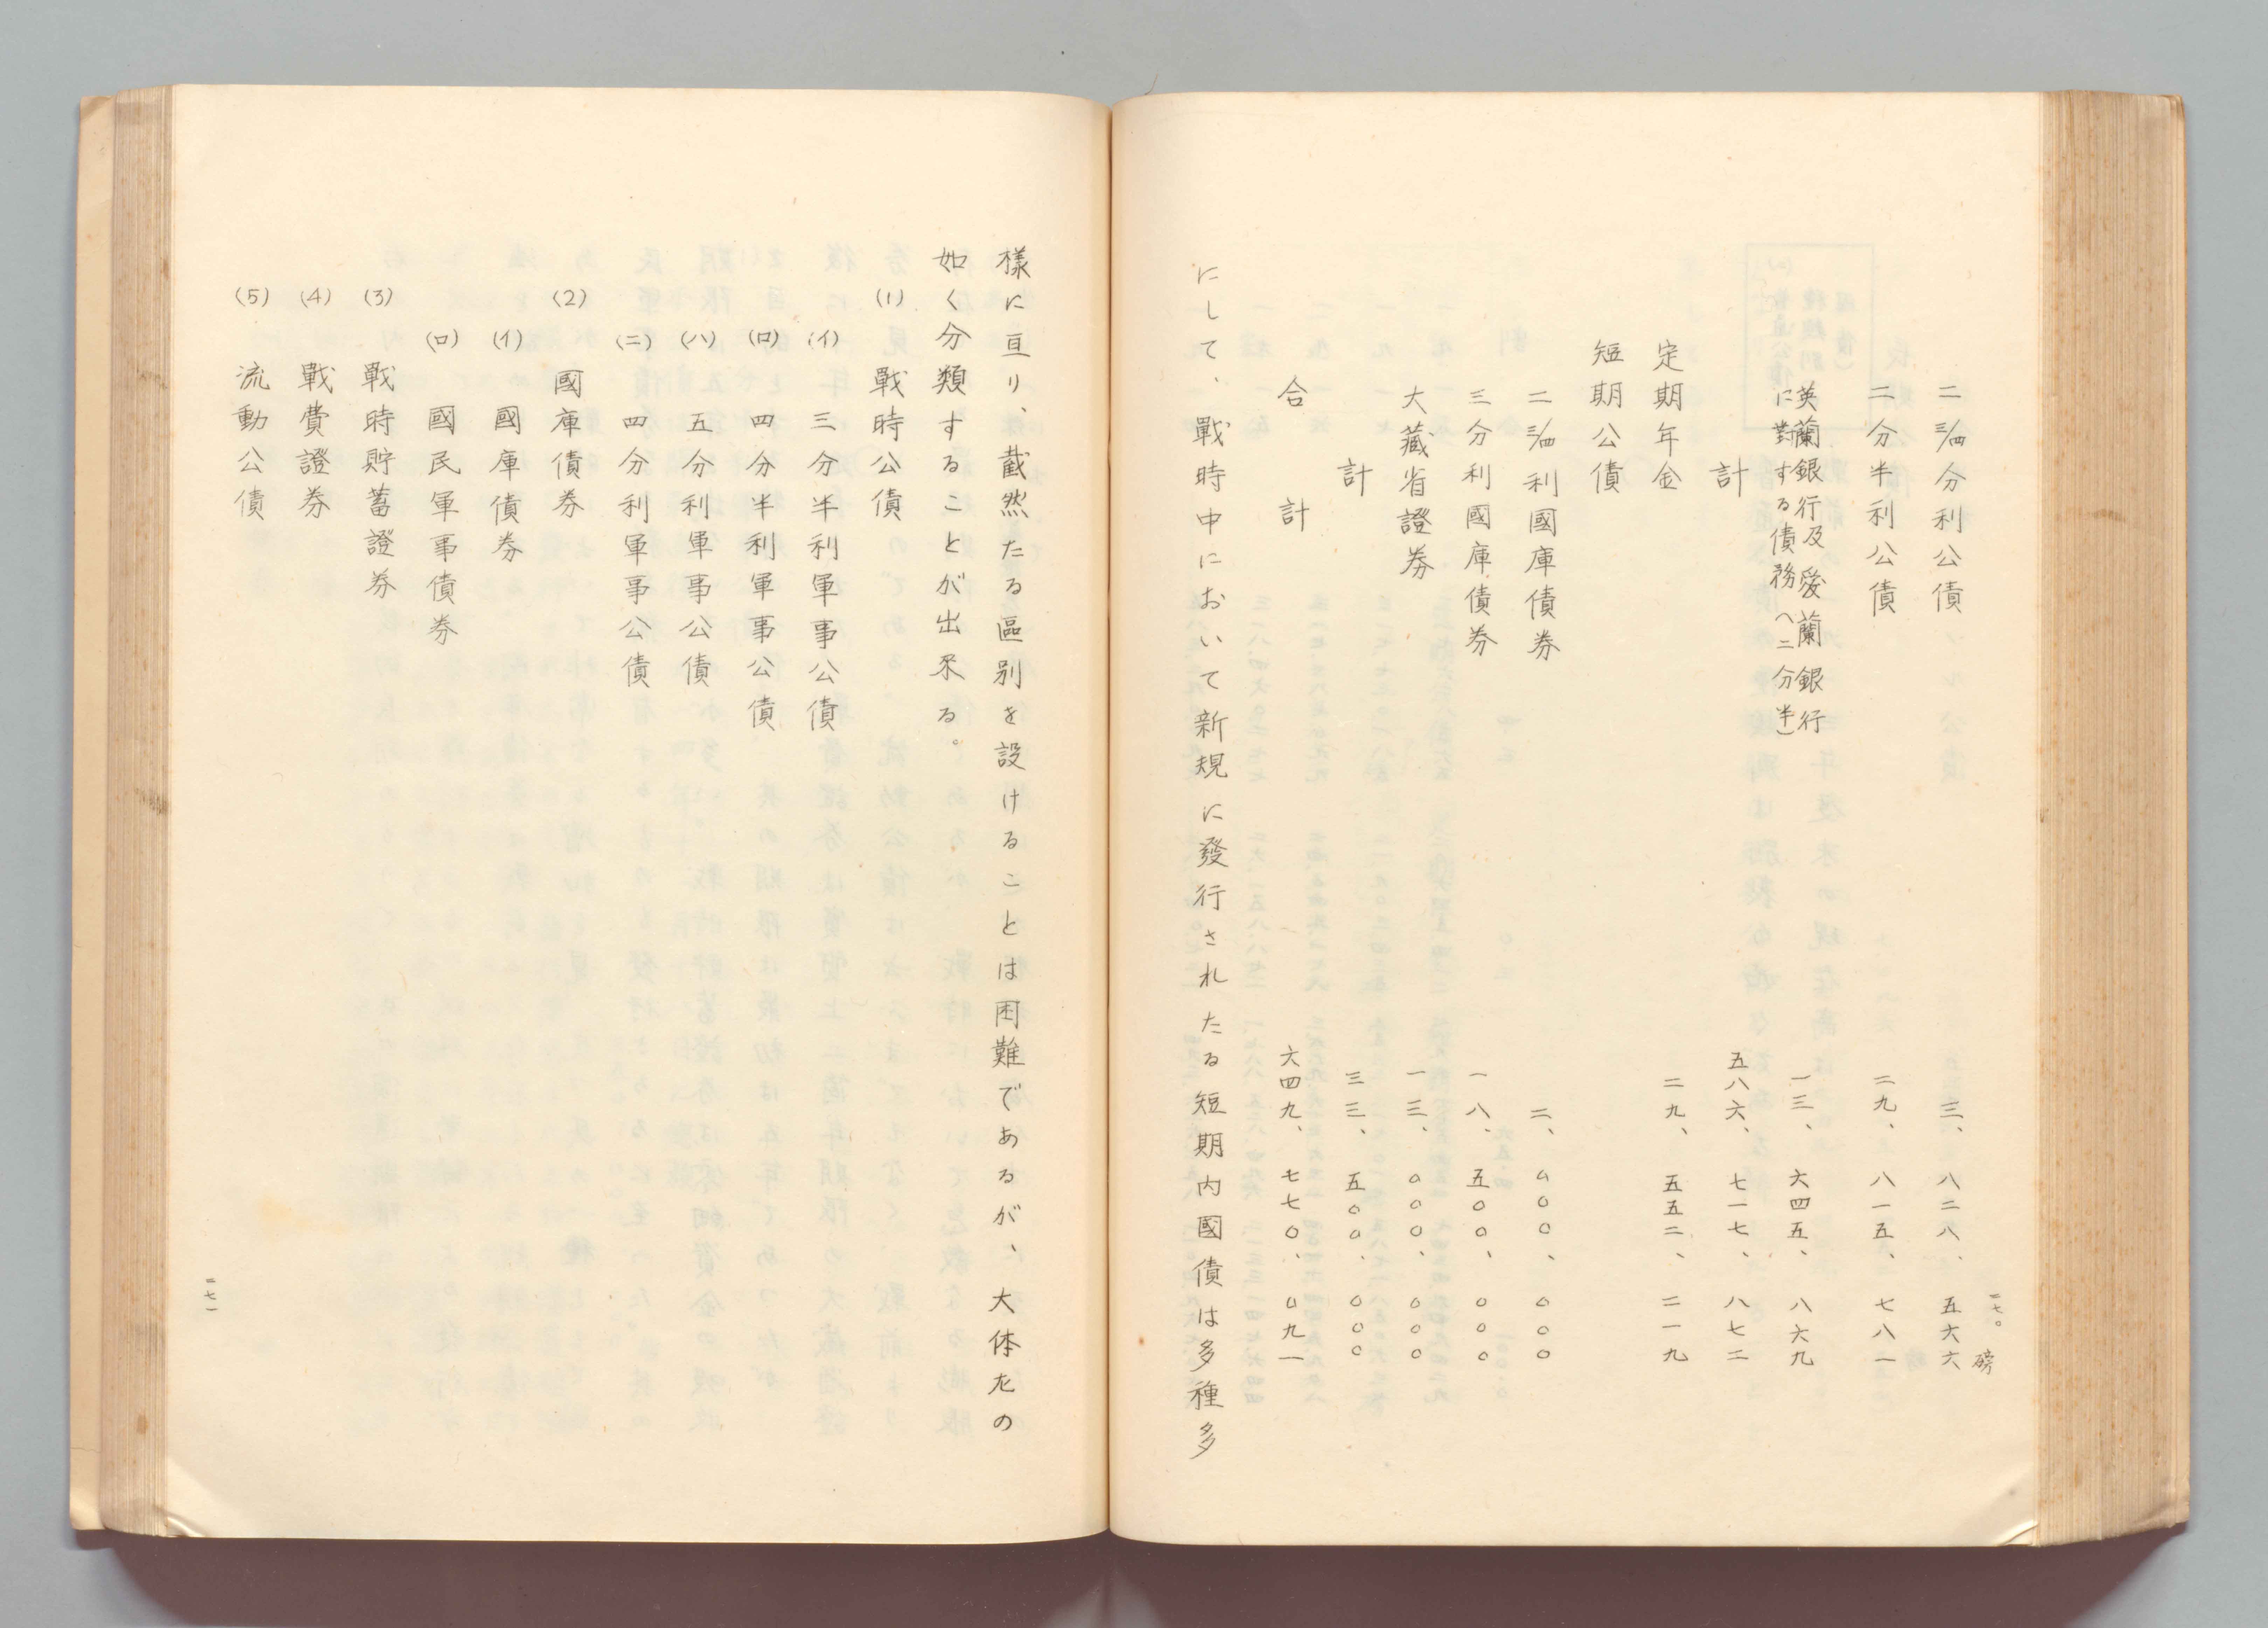 一七〇
磅
二¾分利公債 三、八二八、五六六
二分半利公債 二九、八一五、七八一
英蘭銀行及愛蘭銀行
に對する債務(二分半) 一三、六四五、八六九
計 五八六、七一七、八七二
定期年金 二九、五五二、二一九
短期公債
二¾利國庫債券 二、〇〇〇、〇〇〇
三分利國庫債券 一八、五〇〇、〇〇〇
大藏省證券 一三、〇〇〇、〇〇〇
計 三三、五〇〇、〇〇〇
合計 六四九、七七〇、〇九一
にして、戰時中において新規に發行されたる短期内國債は多種多
樣に亘り、截然たる區別を設けることは困難であるが、大体左の
如く分類することが出來る。
(1) 戰時公債
(イ) 三分半利軍事公債
(ロ) 四分半利軍事公債
(ハ) 五分利軍事公債
(ニ) 四分利軍事公債
(2) 國庫債券
(イ) 國庫債券
(ロ) 國民軍事債券
(3) 戰時貯蓄證券
(4) 戰費證券
(5) 流動公債
一七一